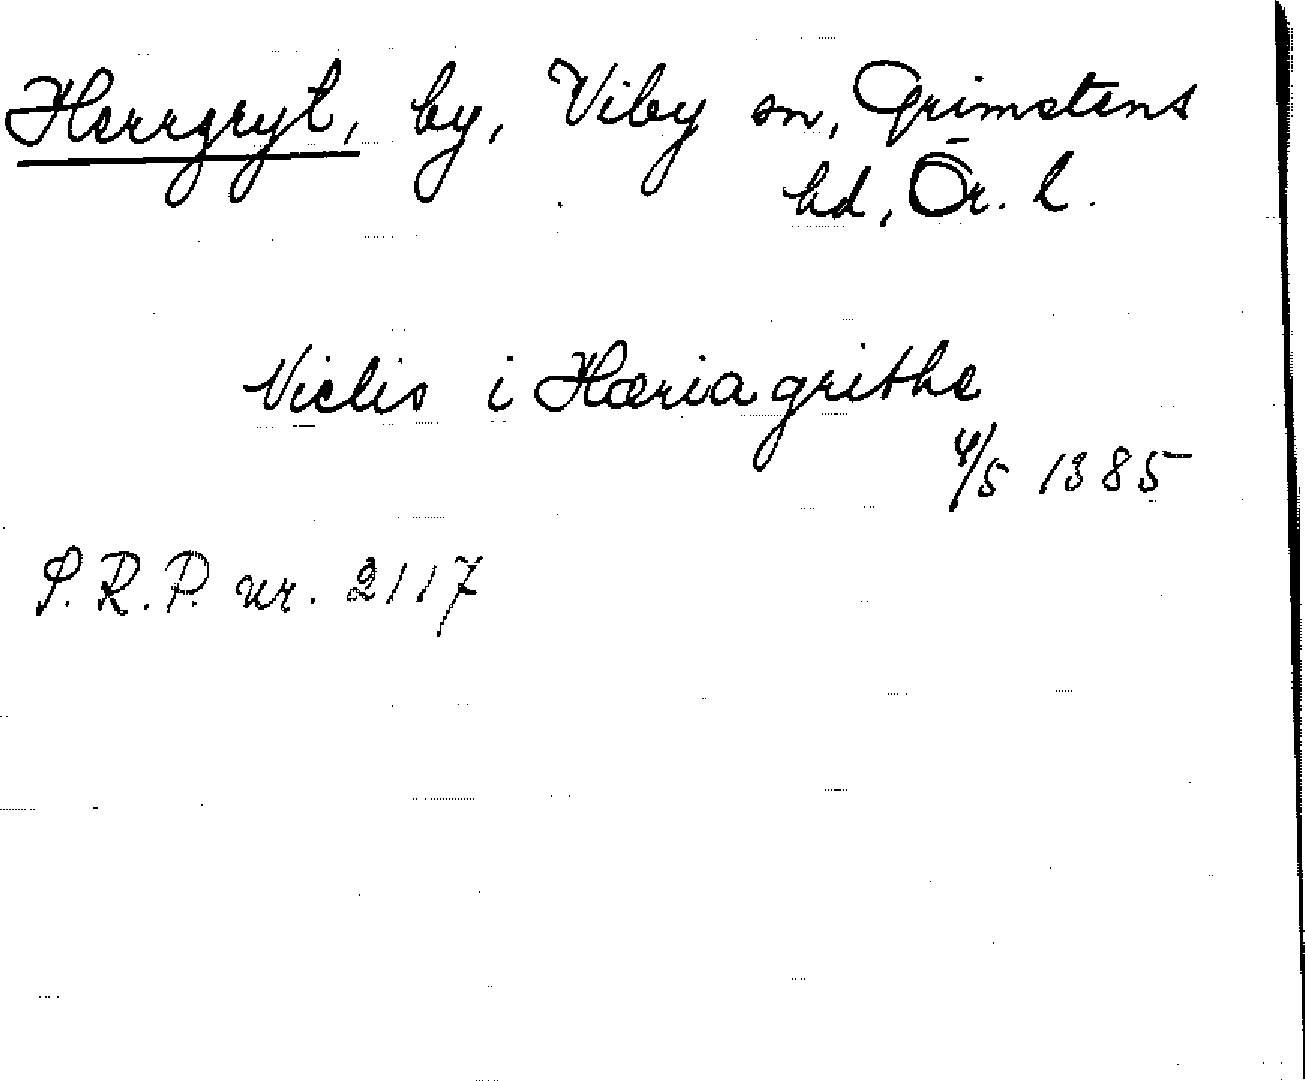 Herrgryt, by, Viby sn, Grimstens
hd, Ör. l.
Viclis i Hæriagrithe
4/5 1385
S.R.P. nr. 2117